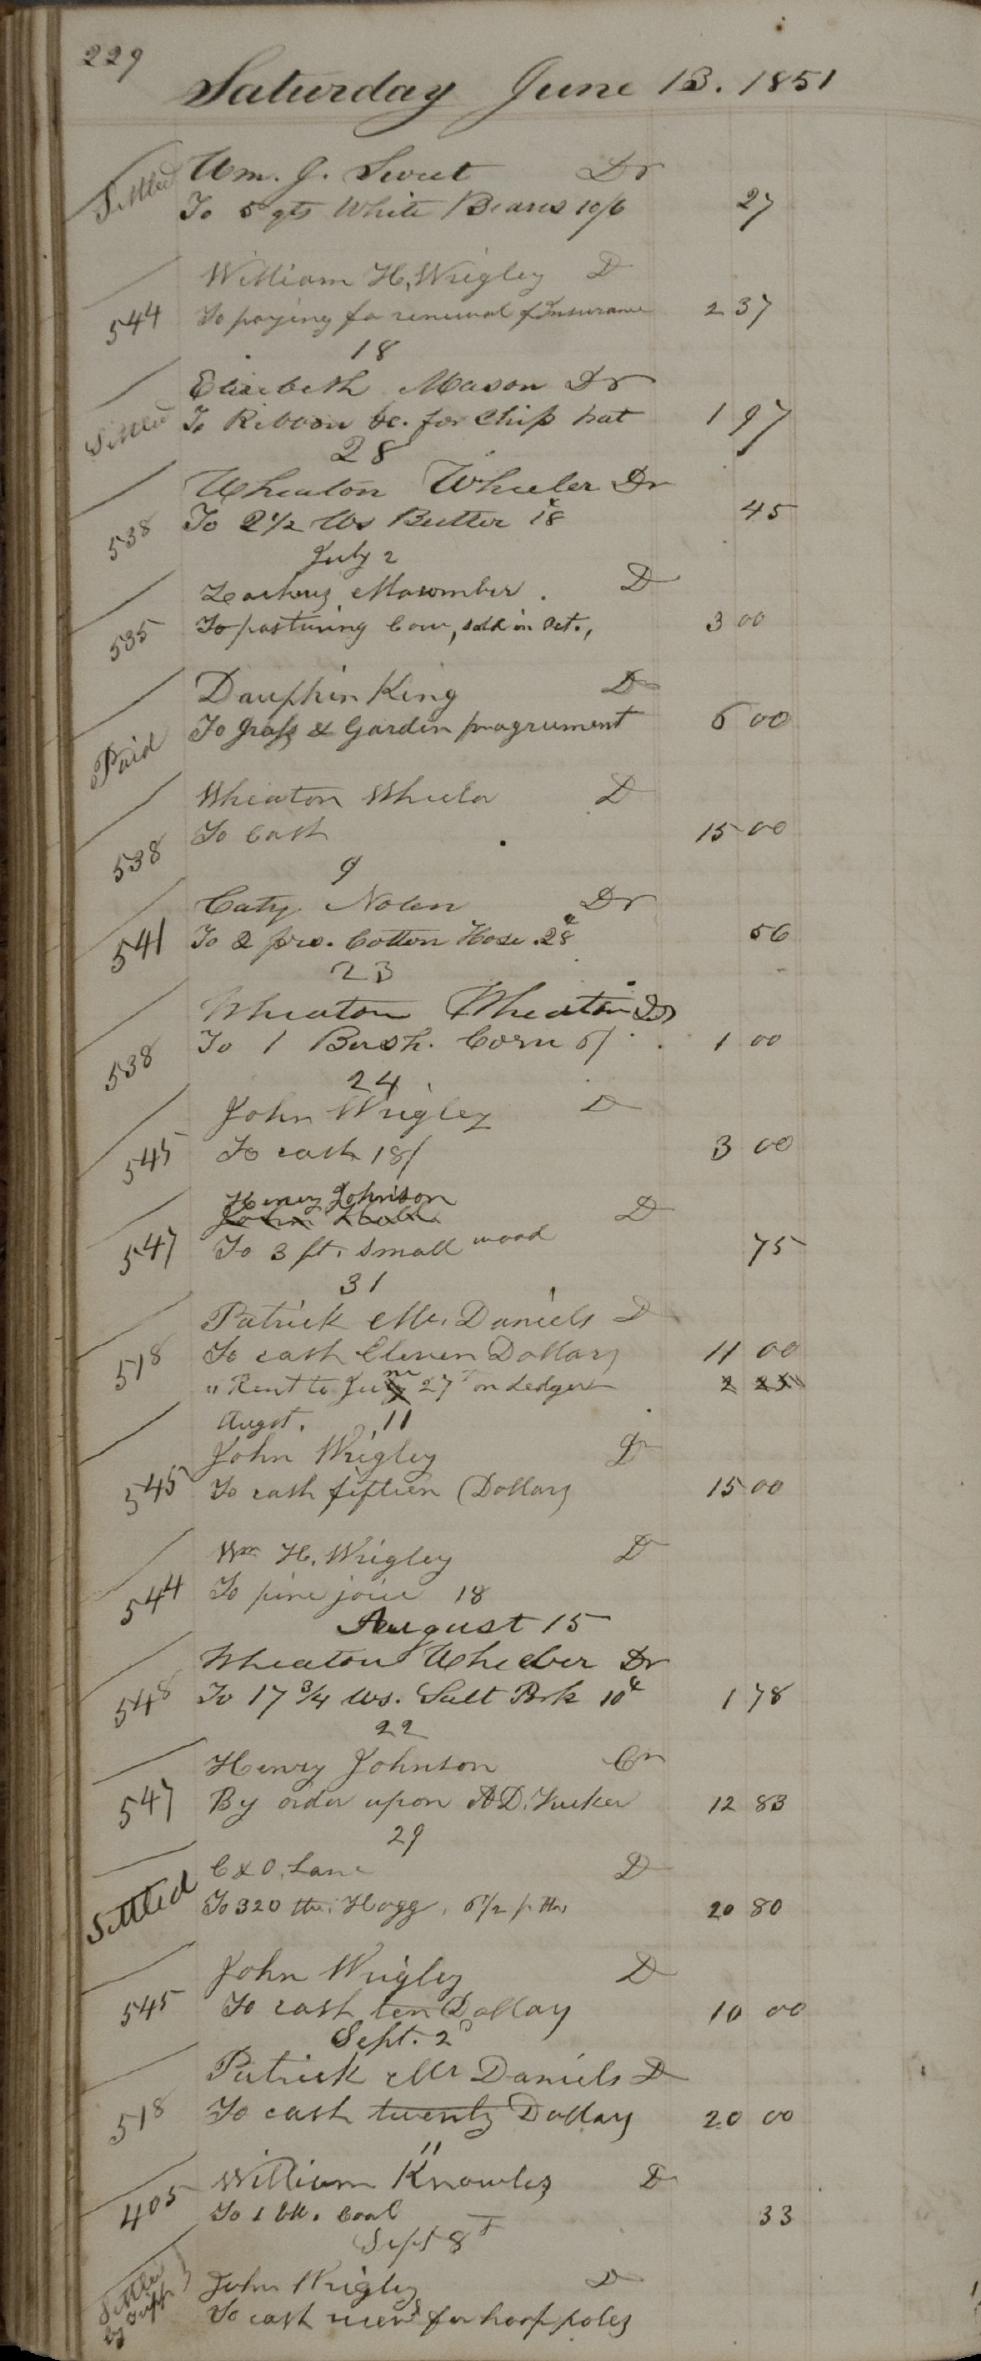 229
Saturday June 13. 1851
Settled Wm. J. Sweet Dr
To 5 qts White Beans 10/6 27
William H. Wrigley D
544 To paying for renewal of Insurance 2 37
18
Elizebeth Mason Dr
Settled To Ribbon &c. for Chip hat 1 97
28
Wheaton Wheeler Dr
538 To 2 1/2 lbs Butter 18 45
July 2
Macomber. D
535 To pasturing Cow, sold in Oct., 3 00
Dauphin King D
Paid To Grass & Garden pr agrument 6 00
Wheaton Wheeler D
538 To Cash 15 00
9
Caty Nolen Dr
541 To 2 prs. Cotton Hose 28 56
23
Wheaton Wheaton Dr
538 To 1 Bush. Corn 6/ 1 00
24
John Wrigley D
545 To cash 18/ 3 00
Henry Johnson
John D
547 To 3 ft. small wood 75
31
Patrick Mc. Daniels D
518 To cash Eleven Dollars 11 00
" Rent to June 27 on Ledger 2 25
Augst. 11
John Wrigley D
545 To cash fifteen Dollars 15 00
Wm H. Wrigley D
544 To pine joice 18
August 15
Wheaton Wheeler Dr
548 To 17 3/4 lbs. Salt Pork 10 1 78
22
Henry Johnson Cr
547 By order upon A D. Tucker 12 83
29
C & O. Lane D
Settled To 320 lbs. Hogg, 6 1/2 p. lb 20 80
John Wrigley D
545 To cash ten Dollars 10 00
Sept. 2d
Patrick Mc Daniels D
518 To cash twenty Dollars 20 00
"
William Knowles D
405 To 1 bbl. Coal 33
Sept 8
Settled by John Wrigley D
To cash for hoop poles